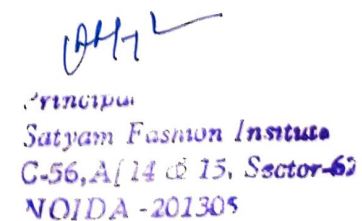 Principal
Satyam Fashion Institute
C-56, A/14 & 15, Sector-62
NOIDA - 201305